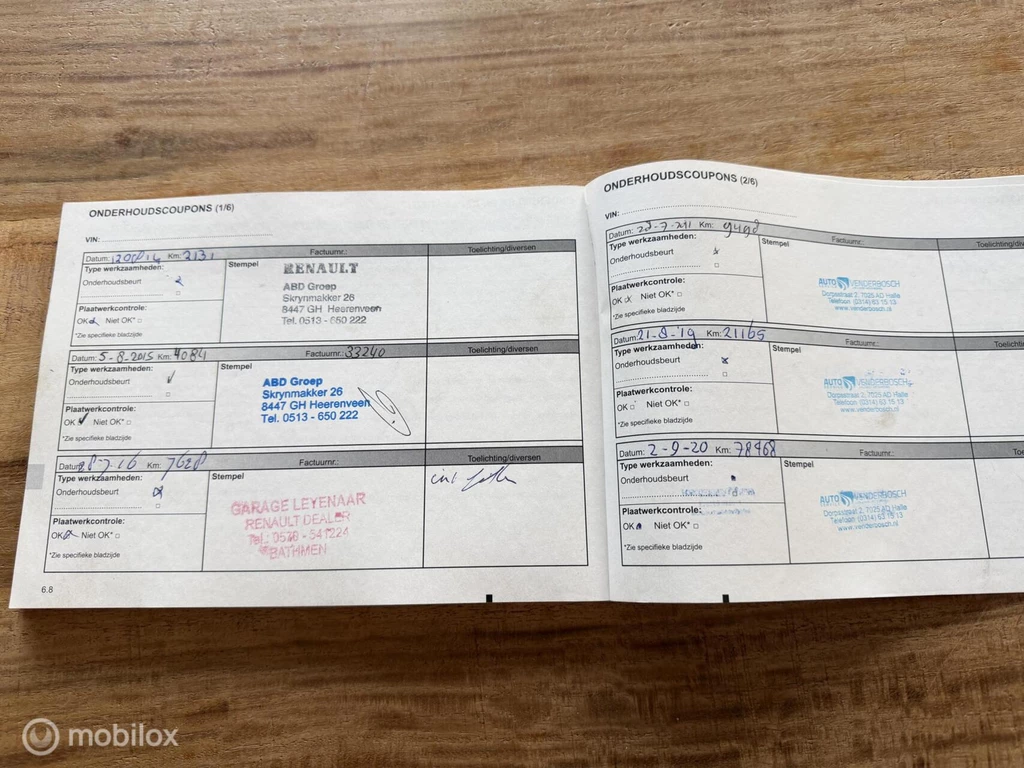 ONDERHOUDSCOUPONS (1/6)
VIN:
Datum: Km: 2131 Factuurnr.: Toelichting/diversen
Type werkzaamheden:
Onderhoudsbeurt
Stempel
RENAULT
ABD Groep
Skrynmakker 26
8447 GH Heerenveen
Tel. 0513 - 650 222
Plaatwerkcontrole:
OK Niet OK*
*Zie specifieke bladzijde
Datum: 5-8-2015 Km: 4084 Factuurnr.: 33240 Toelichting/diversen
Type werkzaamheden:
Onderhoudsbeurt
Stempel
ABD Groep
Skrynmakker 26
8447 GH Heerenveen
Tel. 0513 - 650 222
Plaatwerkcontrole:
OK Niet OK*
*Zie specifieke bladzijde
Datum: 8-7-16 Km: 7628 Factuurnr.: Toelichting/diversen
Type werkzaamheden:
Onderhoudsbeurt
Stempel
GARAGE LEYENAAR
RENAULT DEALER
Tel.: 0570 - 541224
BATHMEN
Plaatwerkcontrole:
OK Niet OK*
*Zie specifieke bladzijde
6.8
ONDERHOUDSCOUPONS (2/6)
VIN:
Datum: Km: Factuurnr.: Toelichting/
Type werkzaamheden:
Onderhoudsbeurt
Stempel
AUTO VENDERBOSCH
Dorpsstraat 2, 7025 AD Halle
Telefoon (0314) 63 15 13
www.venderbosch.nl
Plaatwerkcontrole:
OK Niet OK*
*Zie specifieke bladzijde
Datum: 21-8-'19 Km: 21165 Factuurnr.:
Type werkzaamheden:
Onderhoudsbeurt
Stempel
AUTO VENDERBOSCH
Dorpsstraat 2, 7025 AD Halle
Telefoon (0314) 63 15 13
www.venderbosch.nl
Plaatwerkcontrole:
OK Niet OK*
*Zie specifieke bladzijde
Datum: 2-9-20 Km: 78468 Factuurnr.:
Type werkzaamheden:
Onderhoudsbeurt
Stempel
AUTO VENDERBOSCH
Dorpsstraat 2, 7025 AD Halle
Telefoon (0314) 63 15 13
www.venderbosch.nl
Plaatwerkcontrole:
OK Niet OK*
*Zie specifieke bladzijde
mobilox